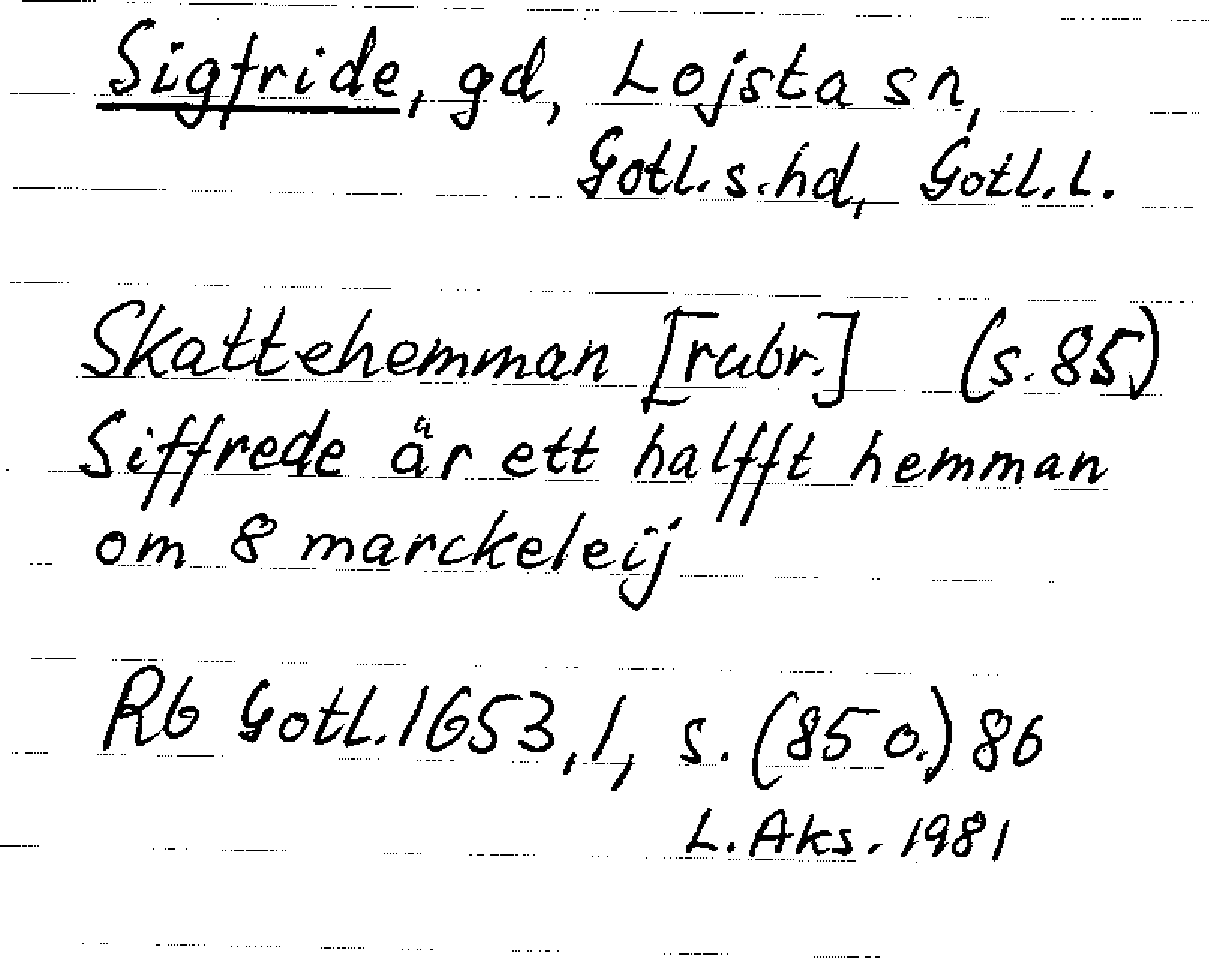 Sigfride, gd, Lojsta sn,
Gotl. s. hd, Gotl. L.
Skattehemman [rubr.] (s. 85)
Siffrede är ett halfft hemman
om 8 marckeleij
Rb Gotl. 1653, 1, s. (85 o.) 86
L. Aks. 1981